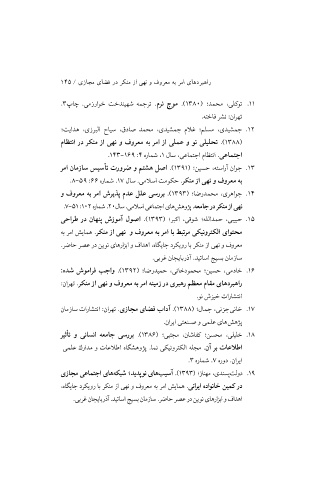 راهبردهای امر به معروف و نهی از منکر در فضای مجازی / ۱۴۵
۱۱. توکلی، محمد؛ (۱۳۸۰). موج نرم. ترجمه شهیندخت خوارزمی. چاپ۳.
تهران: نشر فاخته.
۱۲. جمشیدی، مسلم؛ غلام جمشیدی، محمد صادق، سیاح البرزی، هدایت؛
(۱۳۸۸). تحلیلی نو و عملی از امر به معروف و نهی از منکر در انتظام
اجتماعی. انتظام اجتماعی، سال ۱، شماره ۴: ۱۶۹-۱۴۳.
۱۳. جوان آراسته، حسین؛ (۱۳۹۱). اصل هشتم و ضرورت تأسیس سازمان امر
به معروف و نهی از منکر. حکومت اسلامی. سال ۱۷. شماره ۶۶: ۵۹-۸.
۱۴. جواهری، محمدرضا؛ (۱۳۹۳). بررسی علل عدم پذیرش امر به معروف و
نهی از منکر در جامعه. پژوهش‌های اجتماعی اسلامی، سال ۲۰. شماره ۱۰۲: ۵۱-۷.
۱۵. حبیبی، حمدالله؛ شوقی، اکبر؛ (۱۳۹۳). اصول آموزش پنهان در طراحی
محتوای الکترونیکی مرتبط با امر به معروف و نهی از منکر. همایش امر به
معروف و نهی از منکر با رویکرد جایگاه، اهداف و ابزارهای نوین در عصر حاضر.
سازمان بسیج اساتید. آذربایجان غربی.
۱۶. خادمی، حسین؛ محمودخانی، حمیدرضا؛ (۱۳۹۲). واجب فراموش شده:
راهبردهای مقام معظم رهبری در زمینه امر به معروف و نهی از منکر. تهران:
انتشارات خیزش نو.
۱۷. خانی‌جزنی، جمال؛ (۱۳۸۸). آداب فضای مجازی. تهران: انتشارات سازمان
پژوهش‌های علمی و صنعتی ایران.
۱۸. خلیلی، محسن؛ کفاشان، مجتبی؛ (۱۳۸۶). بررسی جامعه انسانی و تأثیر
اطلاعات بر آن. مجله الکترونیکی نما. پژوهشگاه اطلاعات و مدارک علمی
ایران. دوره ۷. شماره ۳.
۱۹. دولت‌پسندی، مهناز؛ (۱۳۹۳). آسیب‌های نوپدید؛ شبکه‌های اجتماعی مجازی
در کمین خانواده ایرانی. همایش امر به معروف و نهی از منکر با رویکرد جایگاه،
اهداف و ابزارهای نوین در عصر حاضر. سازمان بسیج اساتید. آذربایجان غربی.